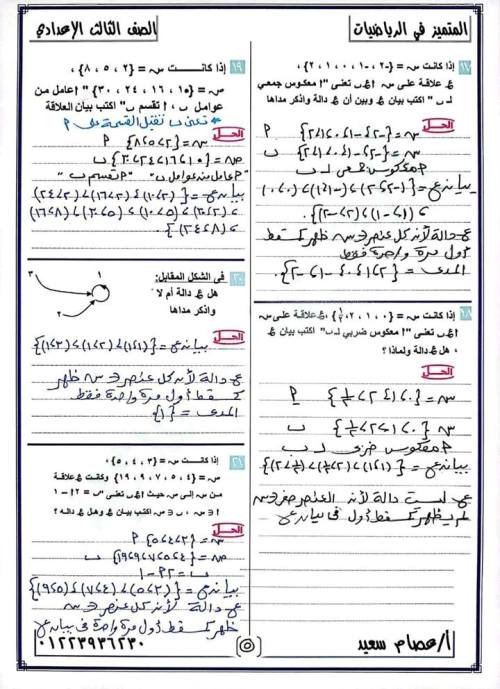 المتميز في الرياضيات
الصف الثالث الإعدادي
١٧ إذا كانت س = {-٢، -١، ٠، ١، ٢}،
ع علاقة على س أ ع ب تعنى "أ معكوس جمعي
لـ ب" اكتب بيان ع وبين أن ع دالة واذكر مداها
الحل
س = {-٢، -١، ٠، ١، ٢} P
س = {-٢، -١، ٠، ١، ٢} ب
P معكوس جمعى لـ ب
بيان ع = {(-٢، ٢)، (-١، ١)، (٠، ٠)
، (١، -١)، (٢، -٢)}.
ع دالة لأن كل عنصر ∈ س ظهر كمسقط
أول مرة واحدة فقط
المدى = {٢، ١، ٠، -١، -٢}.
١٨ إذا كانت س = {٠، ١، ٢، ½}، ع علاقة على س
أ ع ب تعنى "أ معكوس ضربي لـ ب" اكتب بيان ع
، هل ع دالة ولماذا؟
الحل
س = {٠، ١، ٢، ½} P
س = {٠، ١، ٢، ½} ب
P معكوس ضربى لـ ب
بيان ع = {(١، ١)، (٢، ½)، (½، ٢)}
ع ليست دالة لأن العنصر صفر ∈ س
لم يظهر كمسقط أول فى بيان ع
١٩ إذا كانت س = {٢، ٥، ٨}،
ص = {١٠، ١٦، ٢٤، ٣٠} "أ عامل من
عوامل ب، أ تقسم ب" اكتب بيان العلاقة
* تعنى ب تقبل القسمة على P
الحل
س = {٢، ٥، ٨} P
ص = {١٠، ١٦، ٢٤، ٣٠} ب
"P عامل من عوامل ب" "P تقسم ب"
بيان ع = {(٢، ١٠)، (٢، ١٦)، (٢، ٢٤)
، (٢، ٣٠)، (٥، ١٠)، (٥، ٣٠)، (٨، ١٦)
، (٨، ٢٤)}.
٢٠ فى الشكل المقابل:
هل ع دالة أم لا
واذكر مداها
١
٢
٣
الحل
بيان ع = {(١، ١)، (٢، ١)، (٣، ١)}
ع دالة لأن كل عنصر ∈ س ظهر
كمسقط أول مرة واحدة فقط
المدى = {١}
٢١ إذا كانت س = {٣، ٤، ٥}،
ص = {٤، ٥، ٧، ٩، ١٩} وكانت ع علاقة
من س إلى ص حيث أ ع ب تعنى ب = ٢أ - ١
أ ∈ س، ب ∈ ص اكتب بيان ع وهل ع دالة؟
الحل
س = {٣، ٤، ٥} P
ص = {٤، ٥، ٧، ٩، ١٩} ب
ب = ٢P - ١
بيان ع = {(٣، ٥)، (٤، ٧)، (٥، ٩)}
ع دالة لأن كل عنصر ∈ س
ظهر كمسقط أول مرة واحدة فى بيان ع
أ/عصام سعيد
٥
٠١٢٢٣٩٣٦٢٣٠